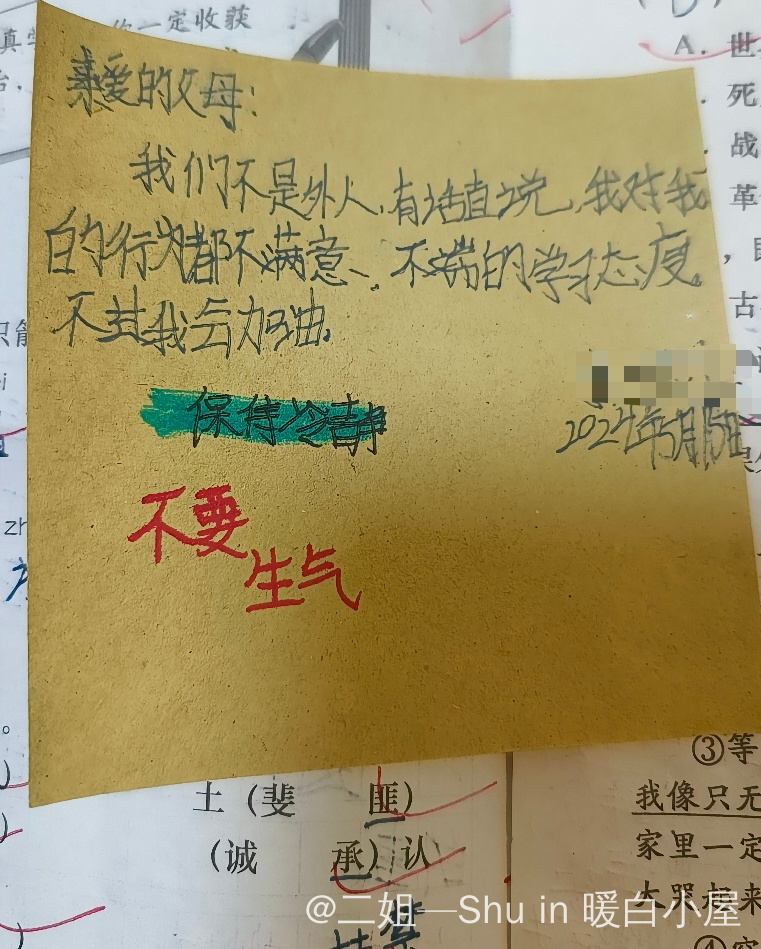 真
你一定收获
亲爱的父母:
我们不是外人,有话直说,我对我
的行为都不满意、不端的学习态度,
不 我会加油。
保持冷静
2024年5月15日
不要
生气
A. 世
死
战
革
古
zh
土(斐 匪)
(诚 承)认
③等
我像只无
家里一定
大哭起来
@二姐—Shu in 暖白小屋